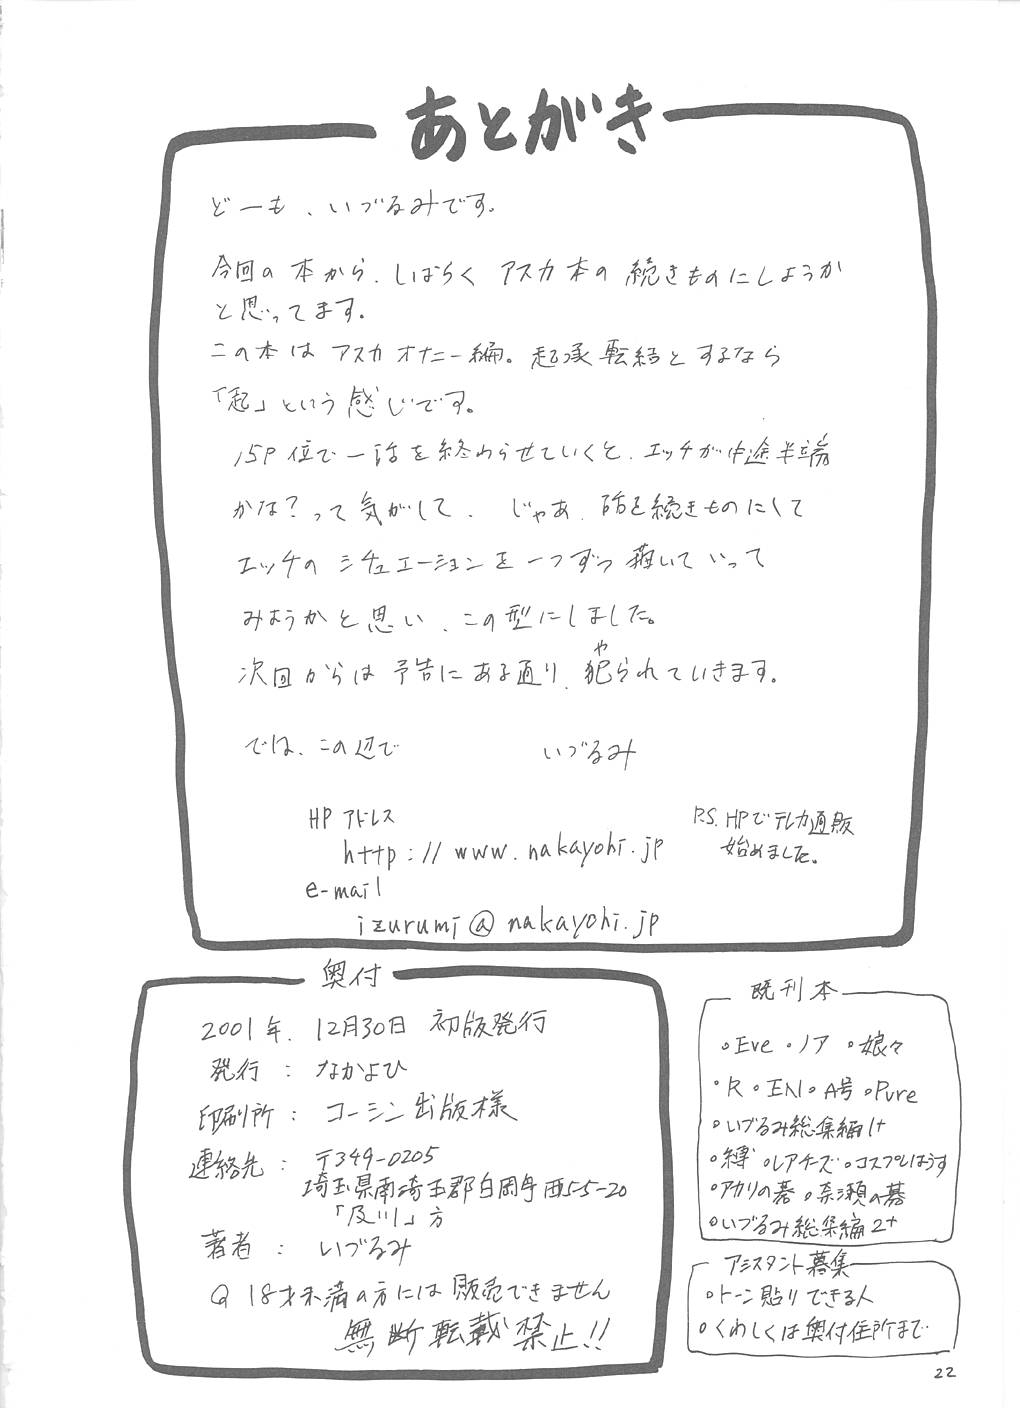 あとがき
どーも、いづるみです。
今回の本から、しばらくアスカ本の続きものにしようか
と思ってます。
この本はアスカオナニー編。起承転結とするなら
「起」という感じです。
15P位で一話を終わらせていくと、エッチが中途半端
かな?って気がして、じゃあ、話を続きものにして
エッチのシチュエーションを一つずつ描いていって
みようかと思い、この型にしました。
次回からは予告にある通り、犯(や)られていきます。
では、この辺で いづるみ
HPアドレス
http://www.nakayohi.jp
e-mail
izurumi@nakayohi.jp
P.S. HPでテレカ通販
始めました。
奥付
2001年.12月30日 初版発行
発行:なかよひ
印刷所:コーシン出版様
連絡先:〒349-0205
埼玉県南埼玉郡白岡町西5-5-20
「及川」方
著者:いづるみ
18才未満の方には販売できません
無断転載禁止!!
既刊本
○Eve ○ノア ○娘々
○R ○EN ○A号 ○Pure
○いづるみ総集編1+
○縛 ○レアチーズ ○コスプレはうす
○アカリの碁 ○奈瀬の碁
○いづるみ総集編2+
アシスタント募集
○トーン貼りできる人
○くわしくは奥付住所まで
22